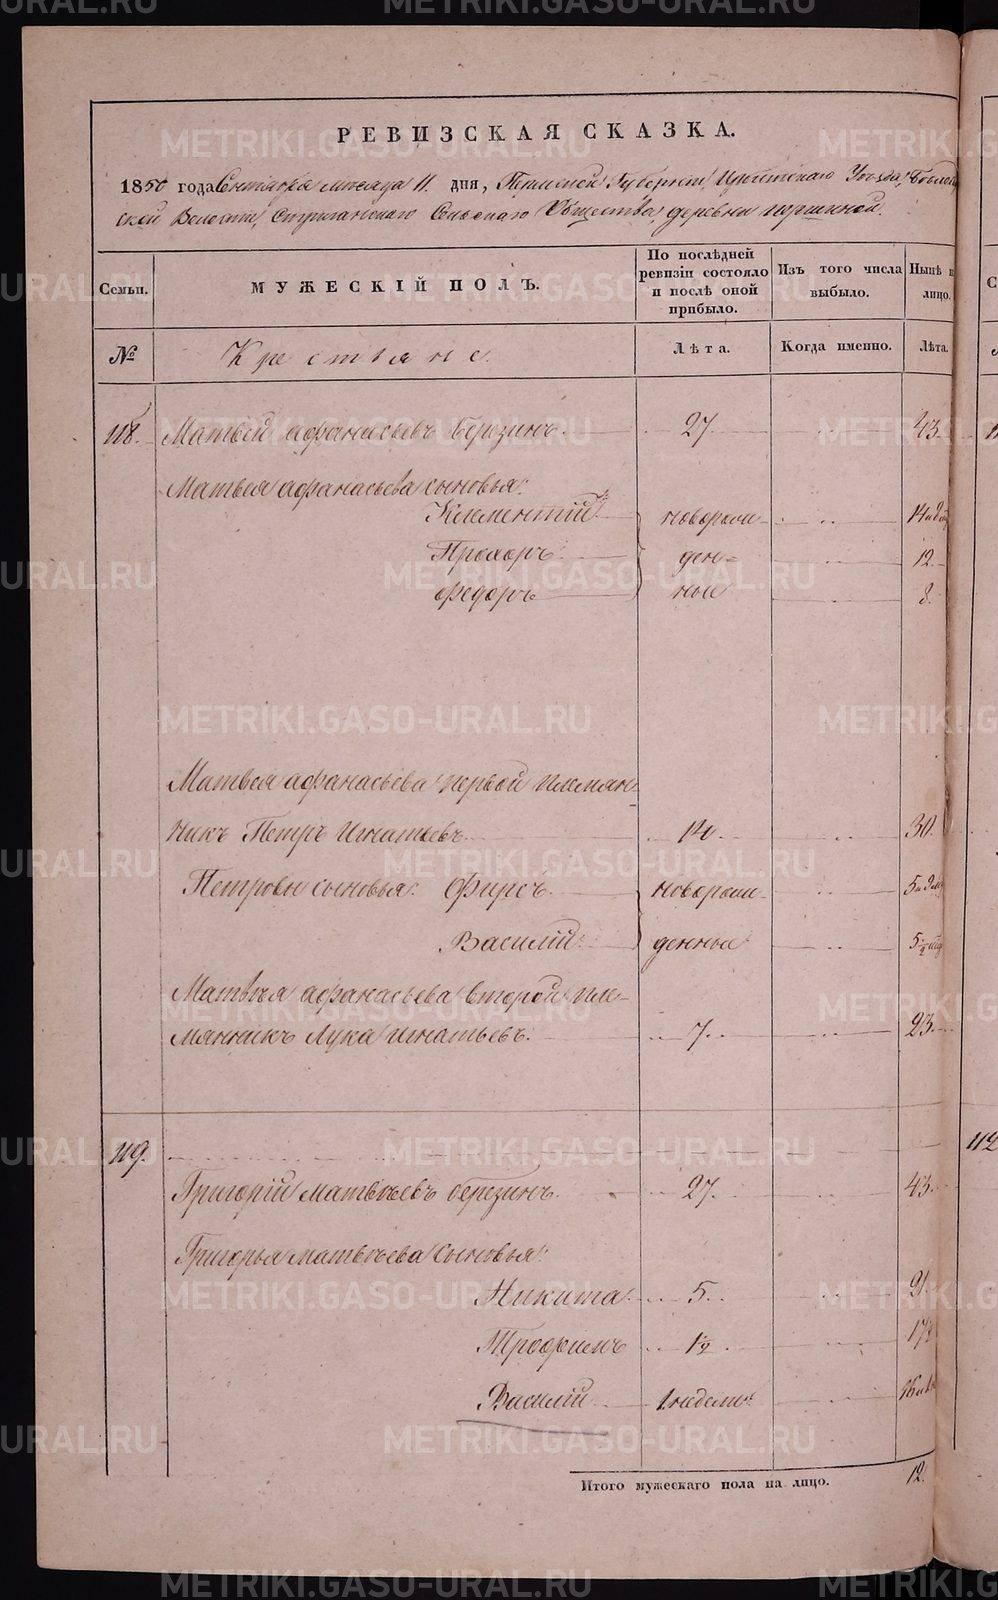 РЕВИЗСКАЯ СКАЗКА.
1850 года Сентября месяца 11 дня, Пермской Губернии, Ирбитскаго Уезда,
ской Волости, Стриганскаго Сельскаго Общества, деревни
Семьи.
МУЖЕСКІЙ ПОЛЪ.
По послѣдней ревизіи состояло и послѣ оной прибыло.
Изъ того числа выбыло.
Нынѣ
лицо.
№
Крестьяне.
Лѣта.
Когда именно.
Лѣта.
118. Матвѣй Афанасьевъ Березинъ. 27. 43.
Матвея Афанасьева сыновья:
Климентій новорож-
Прохоръ ден- 12.
Федоръ ные 8.
Матвея Афанасьева первой племян-
никъ Петръ Игнатьевъ. 14. 30.
Петровы сыновья: Фирсъ новорож-
Василій денные
Матвѣя Афанасьева второй пле-
мянникъ Лука Игнатьевъ. 7. 23.
119.
Григорій Матвѣевъ Березинъ. 27. 43.
Григорья Матвѣева сыновья:
Никита. 5. 21.
Трофимъ 1/2 17
Василій 1 недели
Итого мужескаго пола на лицо. 12.
112
METRIKI.GASO-URAL.RU